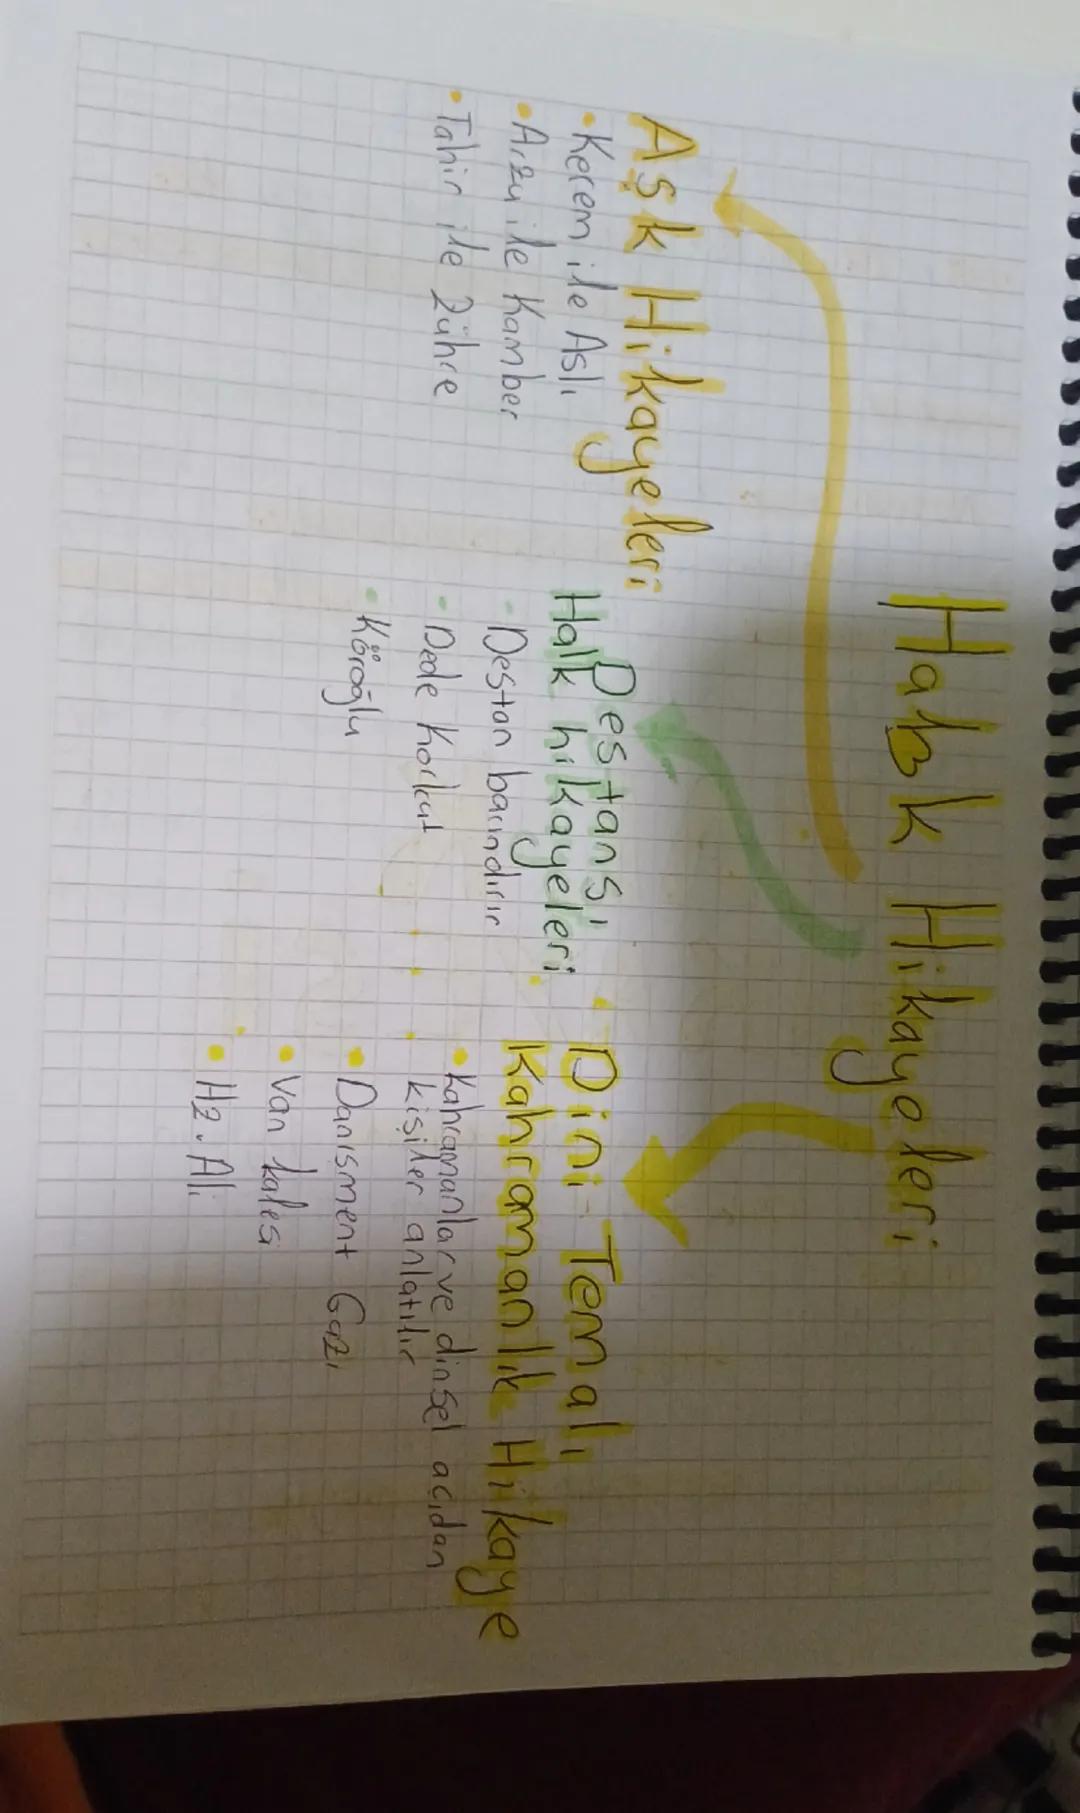 Halk Hikayeleri
Aşk Hikayeleri
• Kerem ile Aslı
• Arzu ile Kamber
• Tahir ile Zühre
Destansı
Halk hikayeleri
• Destan barındırır
• Dede Korkut
• Köroğlu
Dini-Temalı
Kahramanlık Hikaye
• Kahramanlar ve dinsel acıdan
kişiler anlatılır
• Danısment Gazi
• Van kalesi
• Hz. Ali